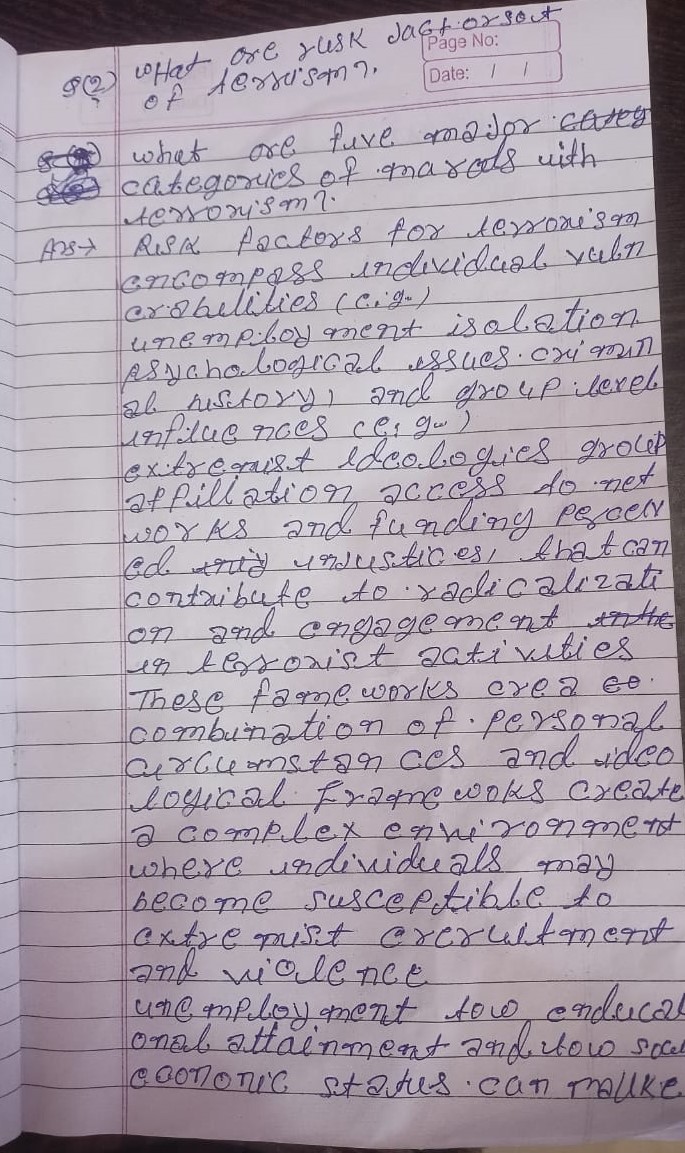 Q(2) What are risk factorsout
Page No:
of terrorism?.
Date: / /
what are five major categ
categories of marods with
terrorism?.
Ans→ Risk factors for terrorism
encompass individual vuln
erabilities (e.g.)
unemployment isolation
psychological issues. crimin
al history, and group level
influences (e, g..)
extremist ideologies group
affillation access to net
works and funding perceiv
ed injustices, that can
contribute to radicalizati
on and engagement in the
in terrorist activities
These fameworks crea ce.
combination of personal
circumstan ces and ideo
logical Frame woks create
a complex environment
where individuals may
become susceptible to
extremist crecruitment
and violence
unemployment low enducat
onal attainment and low soci
econonic status can make